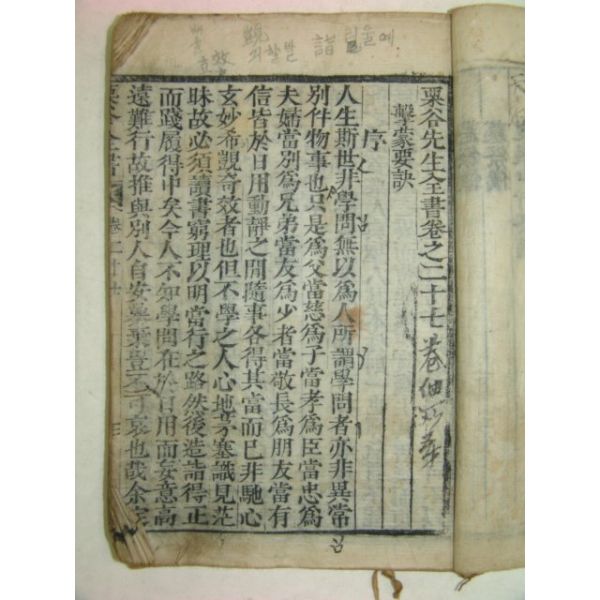 栗谷先生全書卷之二十七
擊蒙要訣
序
人生斯世非學問無以爲人所謂學問者亦非異常
別件物事也只是爲父當慈爲子當孝爲臣當忠爲
夫婦當別爲兄弟當友爲少者當敬長爲朋友當有
信皆於日用動靜之間隨事各得其當而已非馳心
玄妙希覬奇效者也但不學之人心地茅塞識見茫
昧故必須讀書窮理以明當行之路然後造詣得正
而踐履得中矣今人不知學問在於日用而妄意高
遠難行故推與別人自安暴棄豈不可哀也哉余定
栗谷全書 卷二十七
詣